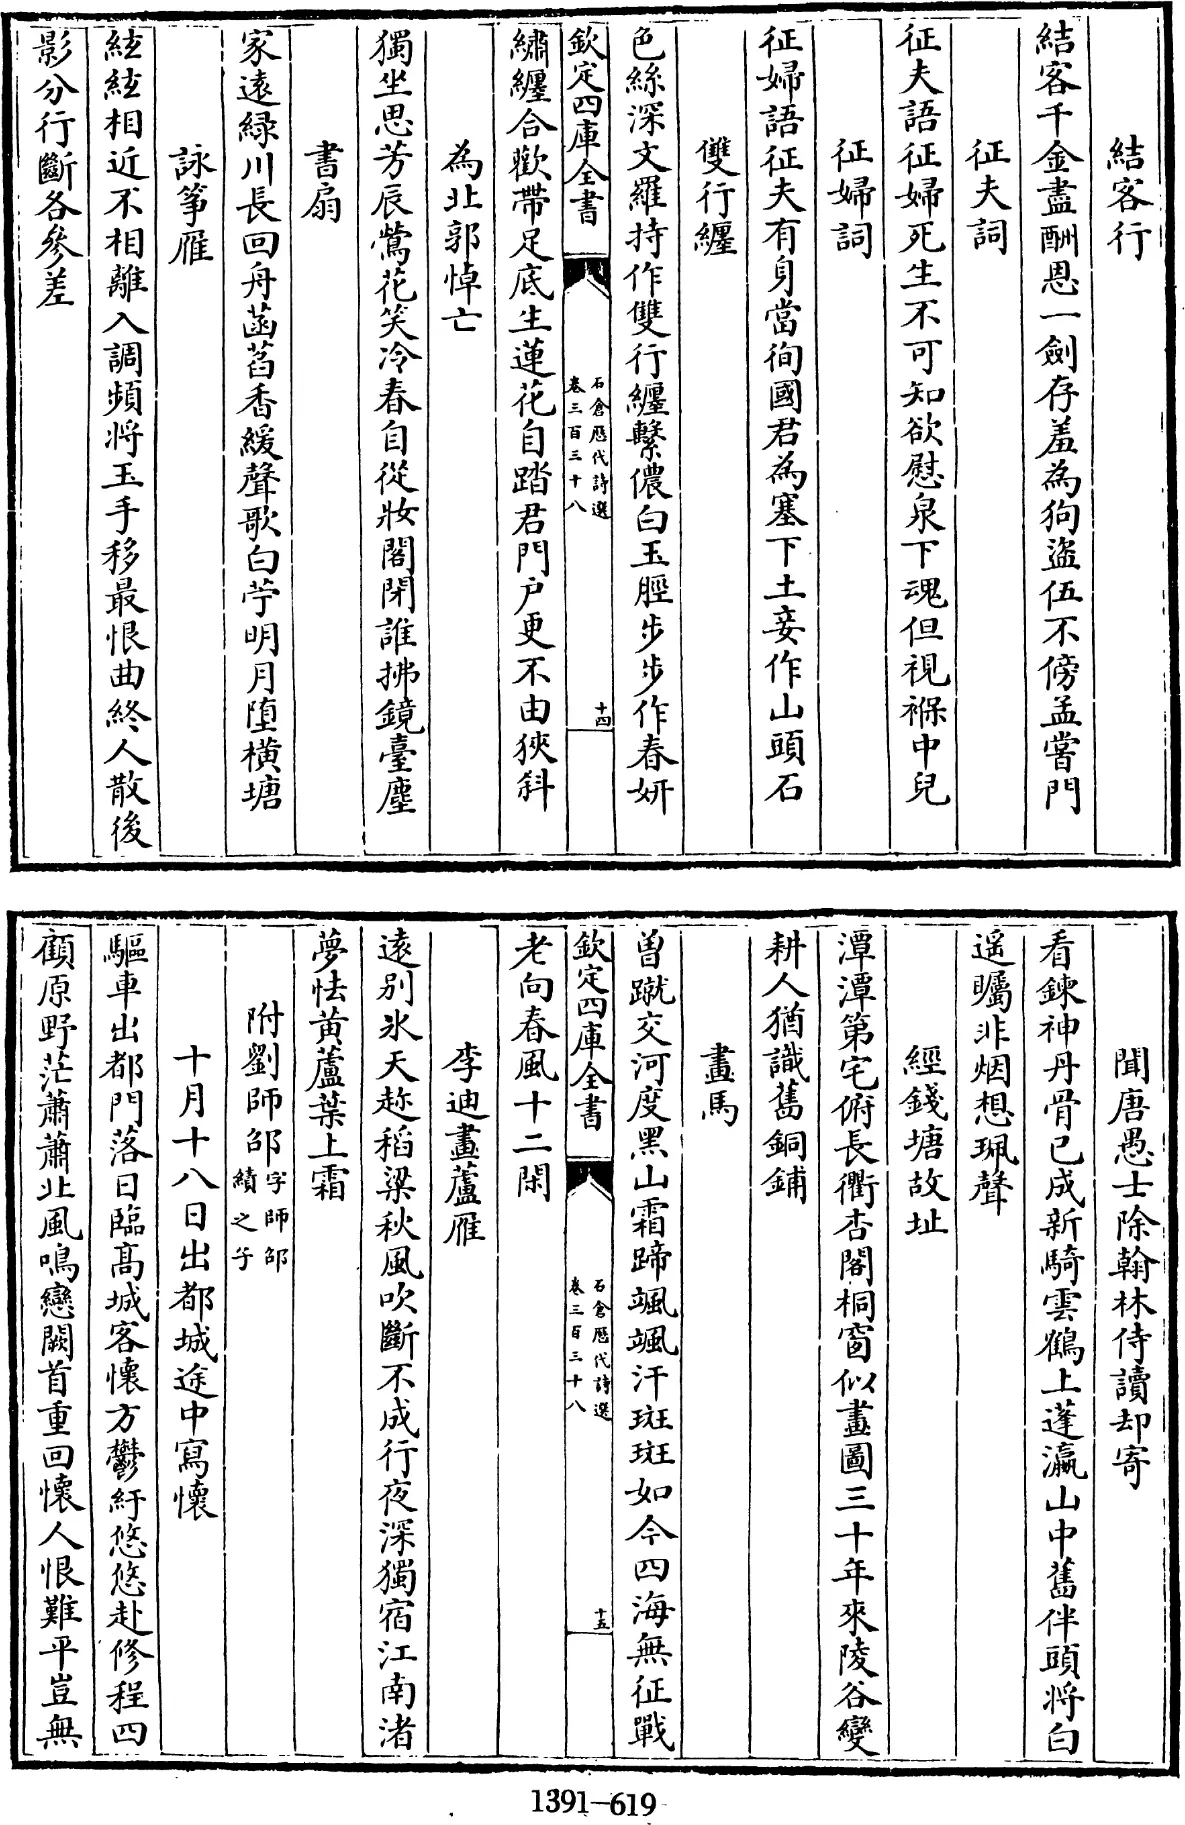 結客行
結客千金盡酬恩一劍存羞為狗盜伍不傍孟嘗門
征夫詞
征夫語征婦死生不可知欲慰泉下魂但視褓中兒
征婦詞
征婦語征夫有身當徇國君為塞下土妾作山頭石
雙行纏
色絲深文羅持作雙行纏繫儂白玉脛步步作春妍
欽定四庫全書
石倉歷代詩選
卷三百三十八
十四
繡纏合歡帶足底生蓮花自踏君門户更不由狹斜
為北郭悼亡
獨坐思芳辰鶯花笑冷春自從妝閣閉誰拂鏡臺塵
書扇
家遠緑川長回舟菡萏香緩聲歌白苧明月墮橫塘
詠箏雁
絃絃相近不相離入調頻將玉手移最恨曲終人散後
影分行斷各參差
聞唐愚士除翰林侍讀却寄
看鍊神丹骨已成新騎雲鶴上蓬瀛山中舊伴頭將白
遥矚非烟想珮聲
經錢塘故址
潭潭第宅俯長衢杏閣桐窗似畫圖三十年來陵谷變
耕人猶識舊銅鋪
畫馬
曽蹴交河度黑山霜蹄颯颯汗斑斑如今四海無征戰
欽定四庫全書
石倉歷代詩選
卷三百三十八
十五
老向春風十二閑
李迪畫蘆雁
遠別氷天趂稻粱秋風吹斷不成行夜深獨宿江南渚
夢怯黄蘆葉上霜
附劉師邵字師邵績之子
十月十八日出都城途中寫懷
驅車出都門落日臨髙城客懷方鬱紆悠悠赴修程四
顧原野茫蕭蕭北風鳴戀闕首重回懷人恨難平豈無
1391-619